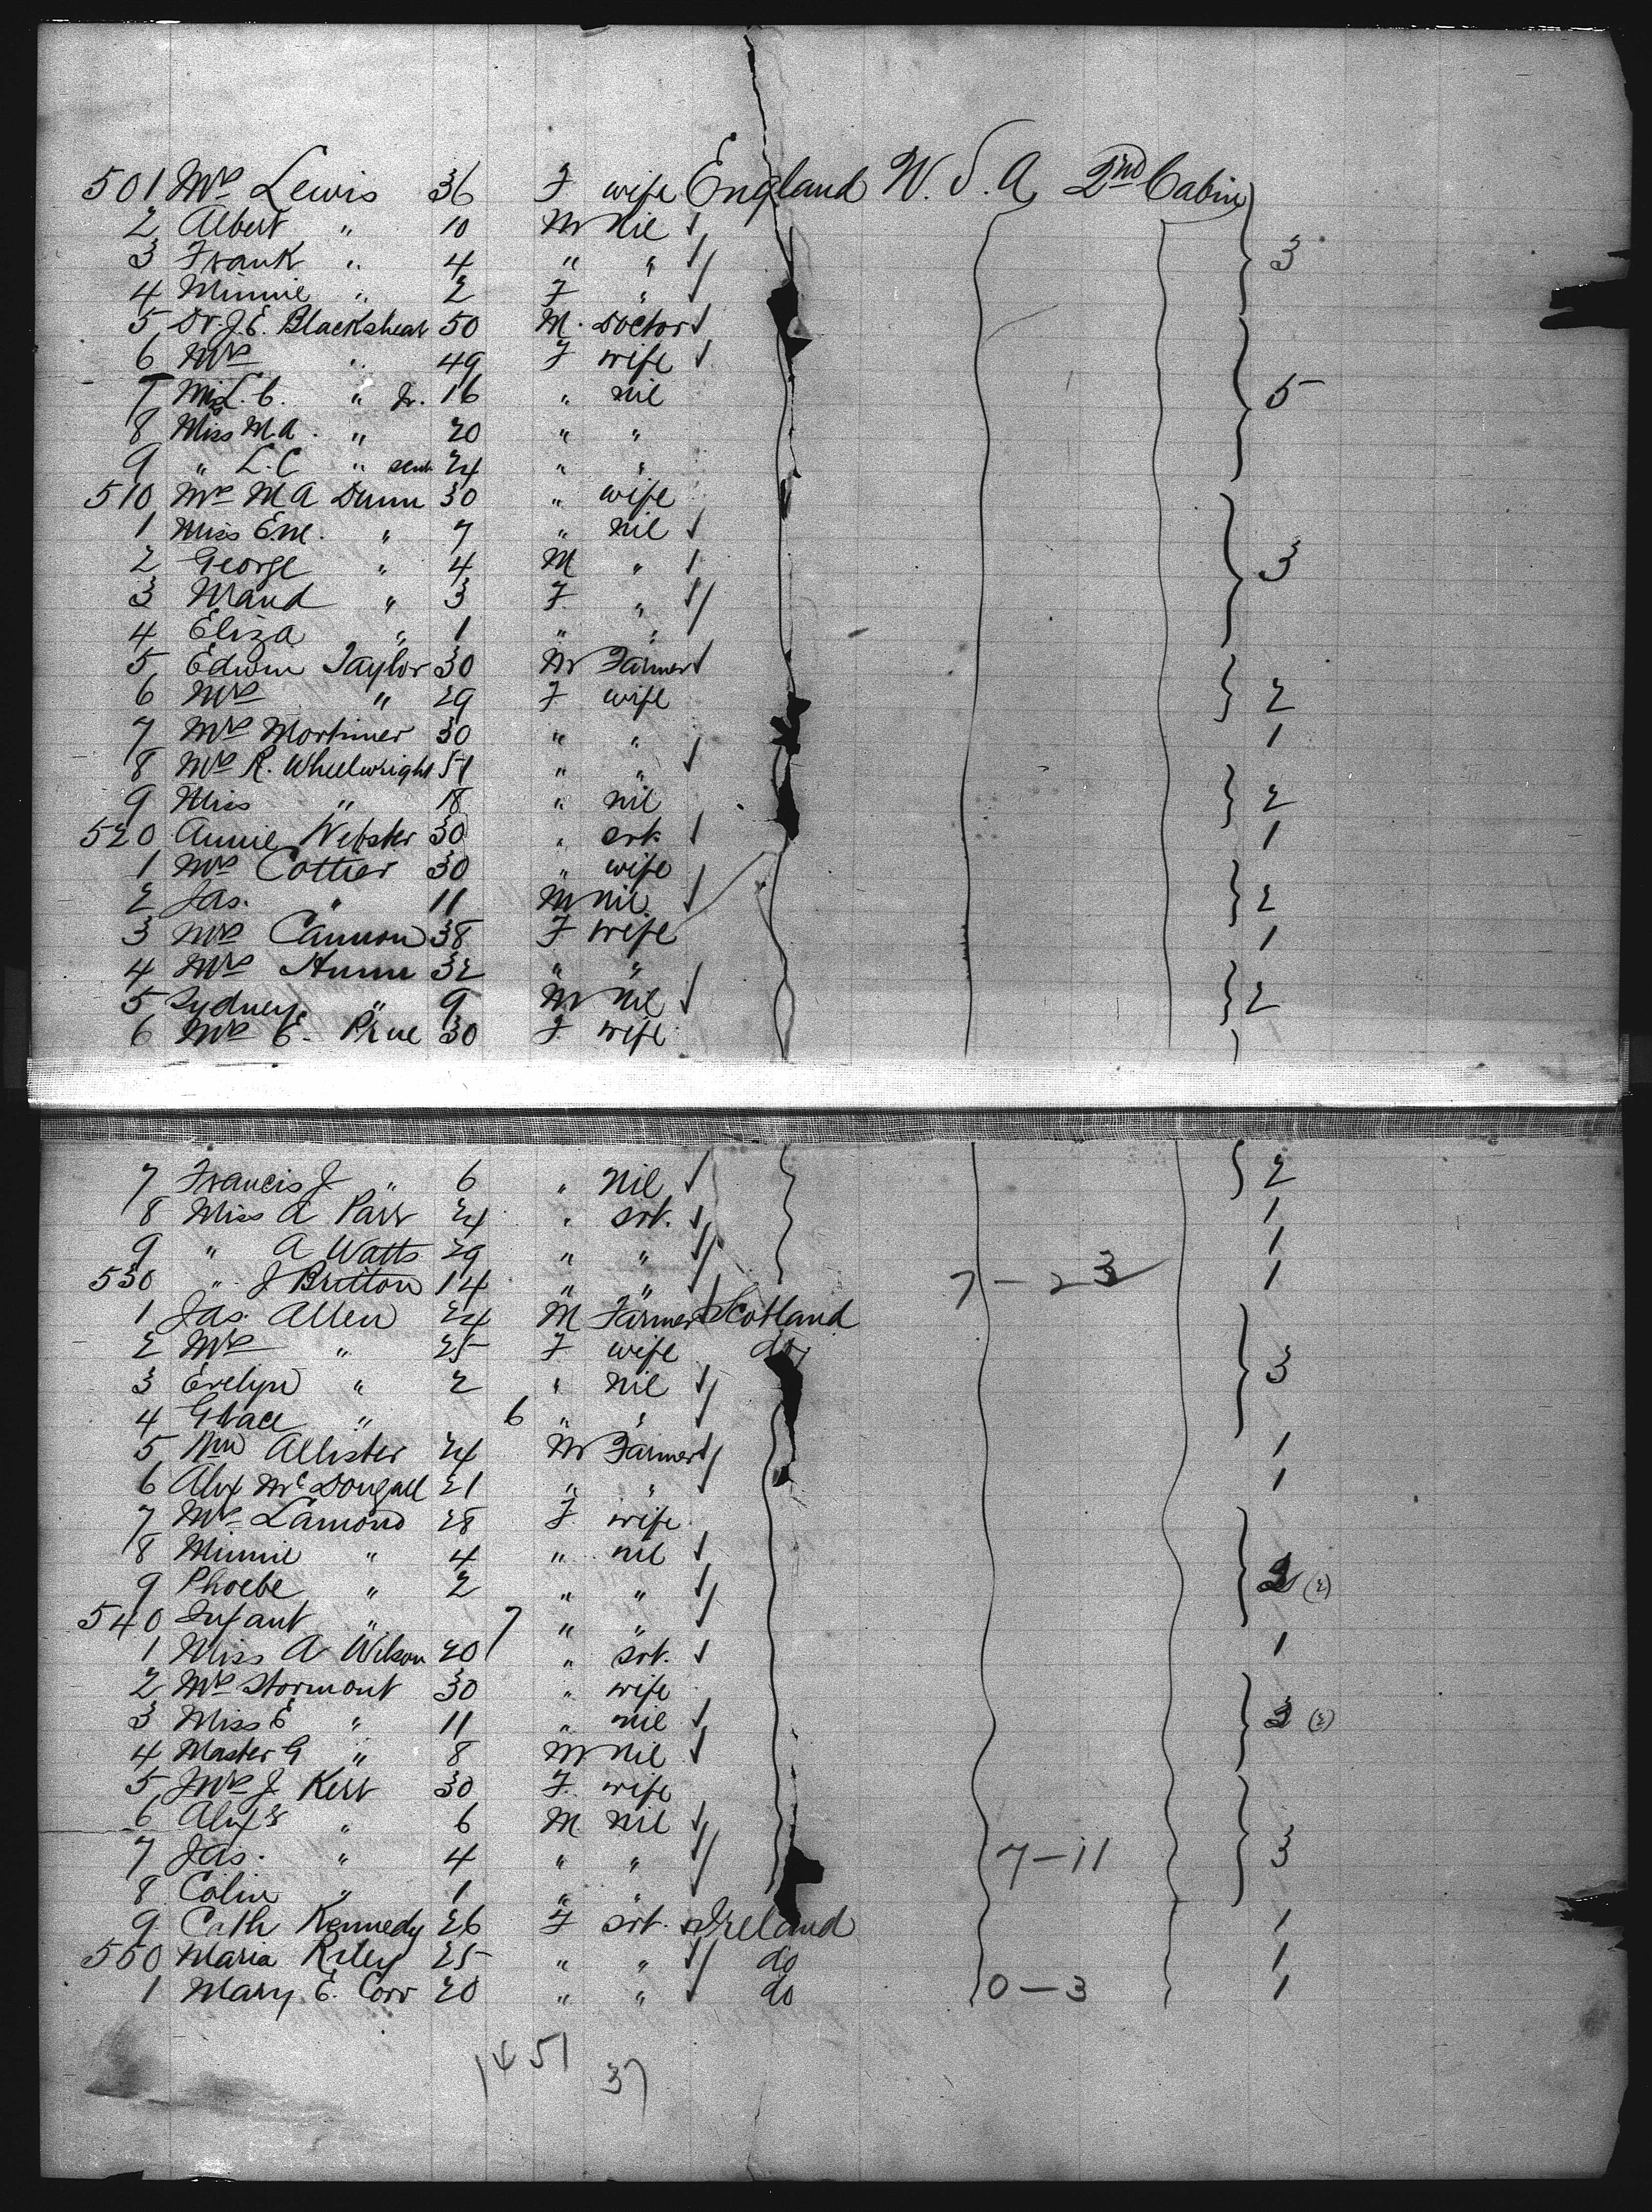 501 Mrs Lewis 36 F wife England U.S.A. 2nd Cabin
2 Albert " 10 M Nil 3
3 Frank " 4 " "
4 Minnie " 2 F "
5 Dr. J. E. Blackshear 50 M. Doctor
6 Mrs " 49 F wife
7 Miss L. C. " Jr. 16 " nil 5
8 Miss M.A. " 20 " "
9 " L. C " sen 24 " "
510 Mrs M A Dunn 30 " wife
1 Miss E.M. " 7 " nil
2 George " 4 M " 3
3 Maud " 3 F. "
4 Eliza " 1 " "
5 Edwin Taylor 30 M Farmer
6 Mrs " 29 F wife 2
7 Mrs Mortimer 30 " " 1
8 Mrs R. Wheelwright 51 " "
9 Miss " 18 " nil 2
520 Annie Webster 30 " srt. 1
1 Mrs Cottier 30 " wife
2 Jas. " 11 M nil 2
3 Mrs Cannon 38 F wife 1
4 Mrs Hunn 32 " "
5 Sydney " 9 M nil 2
6 Mrs E. Prue 30 F. wife
7 Francis J " 6 " Nil 2
8 Miss A Parr 24 " srt. 1
9 " A Watts 29 " " 1
530 " J Britton 14 " " 7 - 23 1
1 Jas. Allen 24 M Farmer Scotland
2 Mrs " 25 F wife do
3 Evelyn " 2 " nil 3
4 Grace " 6 " "
5 Wm Allister 24 M Farmer 1
6 Alex McDougall 21 " " 1
7 Mrs Lamond 28 F. wife
8 Minnie " 4 " nil
9 Phoebe " 2 " " (2)
540 Infant " 7 " "
1 Miss A Wilson 20 " srt. 1
2 Mrs Stormont 30 " wife
3 Miss E " 11 " nil (2)
4 Master G " 8 M nil
5 Mrs J. Kerr 30 F. wife
6 Alex " 6 M. nil
7 Jas. " 4 " " 7 - 11 3
8 Colin " 1 " "
9 Cath Kennedy 26 F srt. Ireland 1
550 Maria Riley 25 " " do 1
1 Mary E. Corr 20 " " do 0 - 3 1
51
37